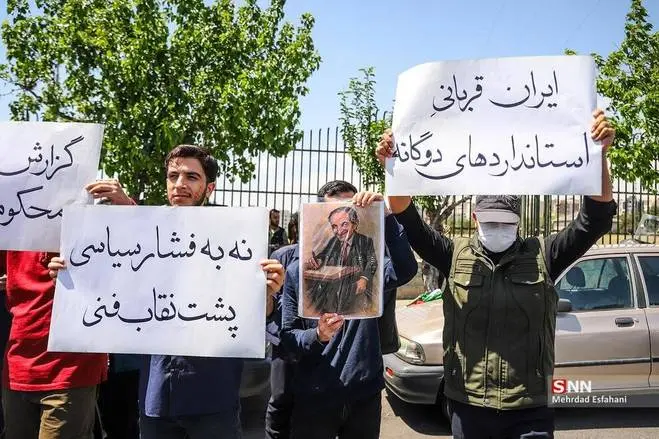 گزارش
محکوم
نه به فشار سیاسی
پشت نقاب فنی
ایران قربانیِ
استانداردهای دوگانه
SNN
Mehrdad Esfahani